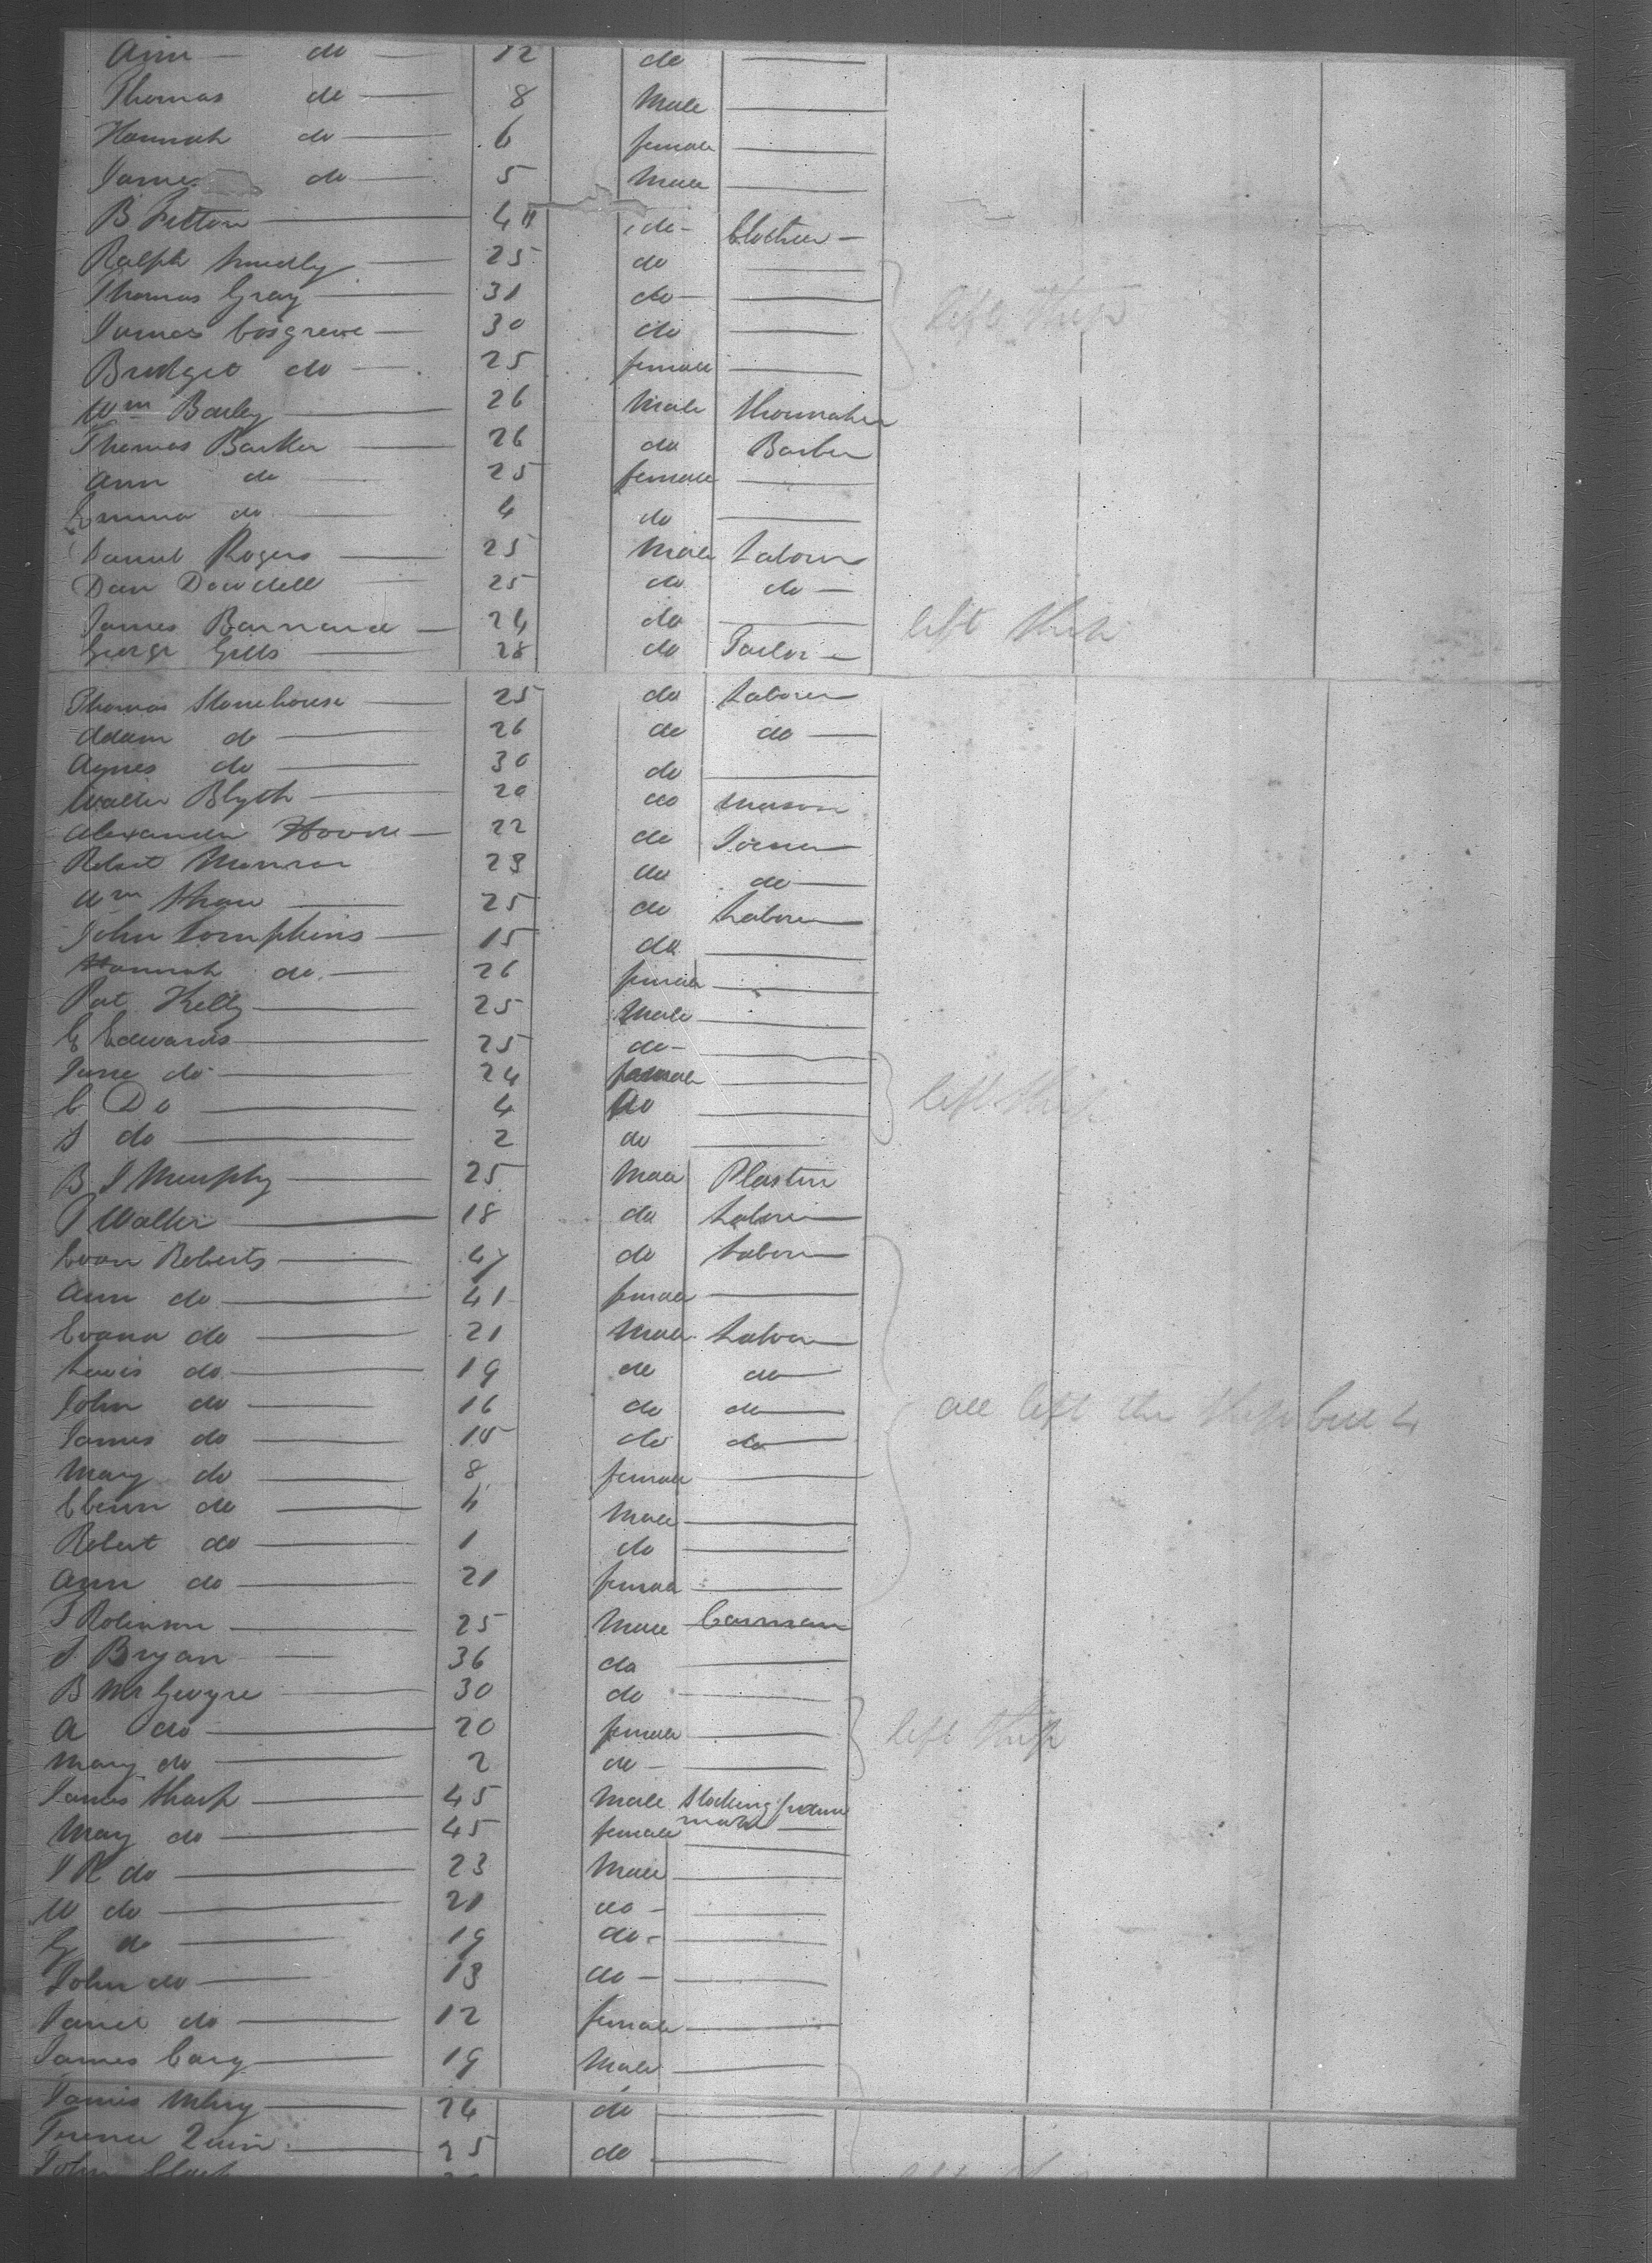 Ann do 12 do
Thomas do 8 Male
Hannah do 6 female
James do 5 Male
B 4 do
Ralph 25 do
Thomas Gray 31 do
James Cosgrove 30 do left Ship
Bridget do 25 female
Wm Bailey 26 Male Shoemaker
Thomas Barker 26 do Barber
Ann do 25 female
Emma do 4 do
Rogers 25 Male Laborer
Dan Dowdell 25 do do
James Barnard 24 do left Ship
George 28 do Tailor
Thomas Stonehouse 25 do Laborer
Adam do 26 do do
Agnes do 30 do
Walter Blyth 20 do Mason
Alexander 22 do Joiner
Robert 23 do do
Wm Shaw 25 do Laborer
John Tompkins 15 do
Hannah do 26 female
Pat Kelly 25 Male
E Edwards 25 do
Jane do 24 female
C Do 4 do left Ship
S do 2 do
B J Murphy 25 Male Plasterer
T Walker 18 do Laborer
Evan Roberts 47 do Labor
Ann do 41 female
Evana do 21 Male Labor
Lewis do 19 do do
John do 16 do do all left the Ship but 4
James do 10 do do
Mary do 8 female
do 4 Male
Robert do 1 do
Ann do 21 female
Robinson 25 Male Carman
J Bryan 36 do
B 30 do
A do 20 female left Ship
Mary do 2 do
James Sharp 45 Male Stocking frame
May do 45 female
J R do 23 Male
W do 21 do
G do 19 do
John do 13 do
do 12 female
James Cary 19 Male
James 24 do
Terence Quin 25 do
John